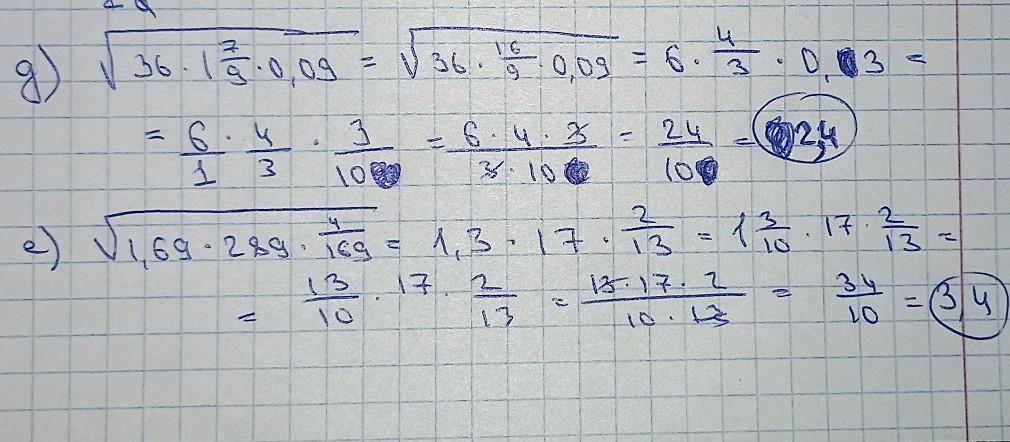 д) √36 · 1 7/9 · 0,09 = √36 · 16/9 · 0,09 = 6 · 4/3 · 0,3 =
= 6/1 · 4/3 · 3/10 = 6 · 4 · 3/3 · 10 = 24/10 = 2,4
е) √1,69 · 289 · 4/169 = 1,3 · 17 · 2/13 = 1 3/10 · 17 · 2/13 =
= 13/10 · 17 · 2/13 = 13 · 17 · 2/10 · 13 = 34/10 = 3,4